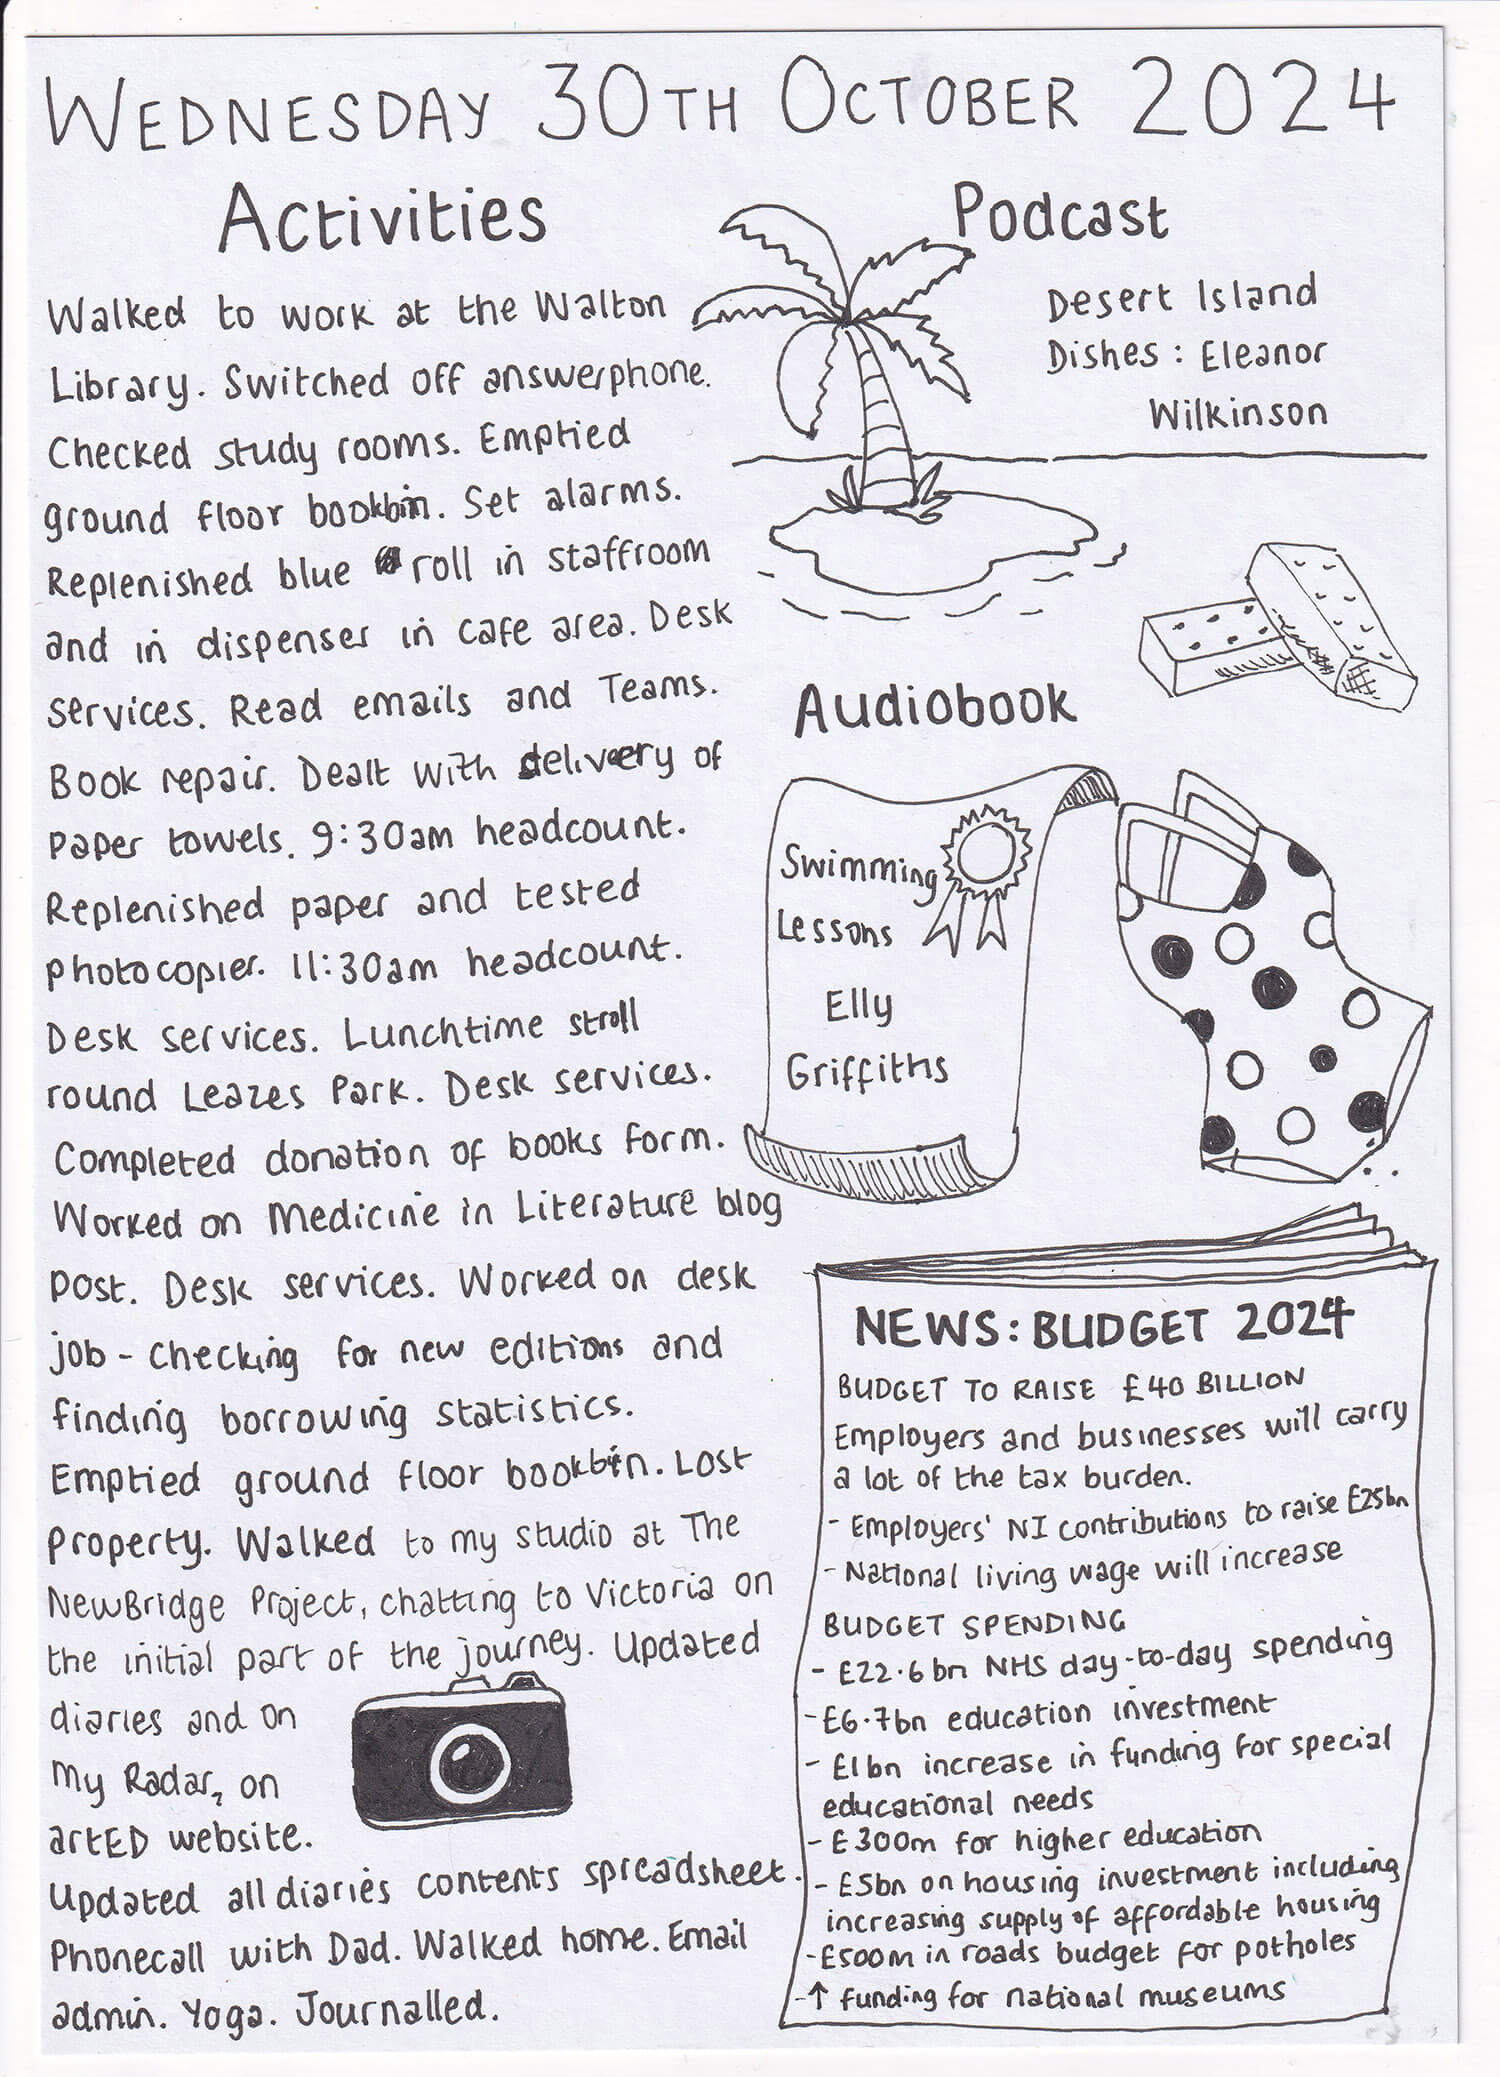 WEDNESDAY 30TH OCTOBER 2024
Activities
Walked to work at the Walton
Library. Switched off answerphone.
Checked study rooms. Emptied
ground floor bookbin. Set alarms.
Replenished blue roll in staffroom
and in dispenser in cafe area. Desk
services. Read emails and Teams.
Book repair. Dealt with delivery of
paper towels. 9:30am headcount.
Replenished paper and tested
photocopier. 11:30am headcount.
Desk services. Lunchtime stroll
round Leazes Park. Desk services.
Completed donation of books form.
Worked on Medicine in Literature blog
post. Desk services. Worked on desk
job - checking for new editions and
finding borrowing statistics.
Emptied ground floor bookbin. Lost
Property. Walked to my studio at The
NewBridge Project, chatting to Victoria on
the initial part of the journey. Updated
diaries and on
my Radar, on
artED website.
Updated all diaries contents spreadsheet.
Phonecall with Dad. Walked home. Email
admin. Yoga. Journalled.
Podcast
Desert Island
Dishes: Eleanor
Wilkinson
Audiobook
Swimming
Lessons
Elly
Griffiths
NEWS: BUDGET 2024
BUDGET TO RAISE £40 BILLION
Employers and businesses will carry
a lot of the tax burden.
- Employers' NI contributions to raise £25bn
- National living wage will increase
BUDGET SPENDING
- £22.6bn NHS day-to-day spending
- £6.7bn education investment
- £1bn increase in funding for special
educational needs
- £300m for higher education
- £5bn on housing investment including
increasing supply of affordable housing
- £500m in roads budget for potholes
- ↑ funding for national museums